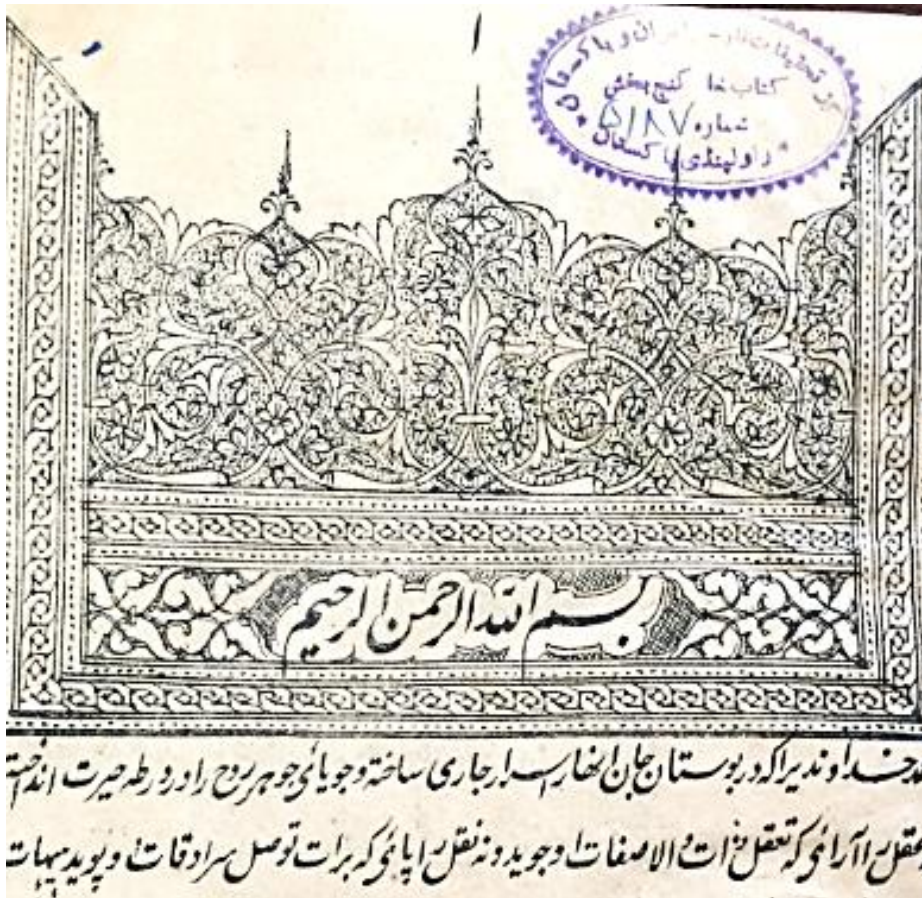 مرکز تحقیقات فارسی ایران و پاکستان
کتابخانه گنج بخش
شماره ۵۱۸۷
راولپندی پاکستان
بسم الله الرحمن الرحیم
خداوندیرا که در بوستان جان انهار اسرار جاری ساخته و جویائی جوهر روح را در ورطه حیرت انداخته
آرائی که تعقل ذات والاصفات او جوید و نه نقل پائی که برات توصل سرادقات او پوید هیهات